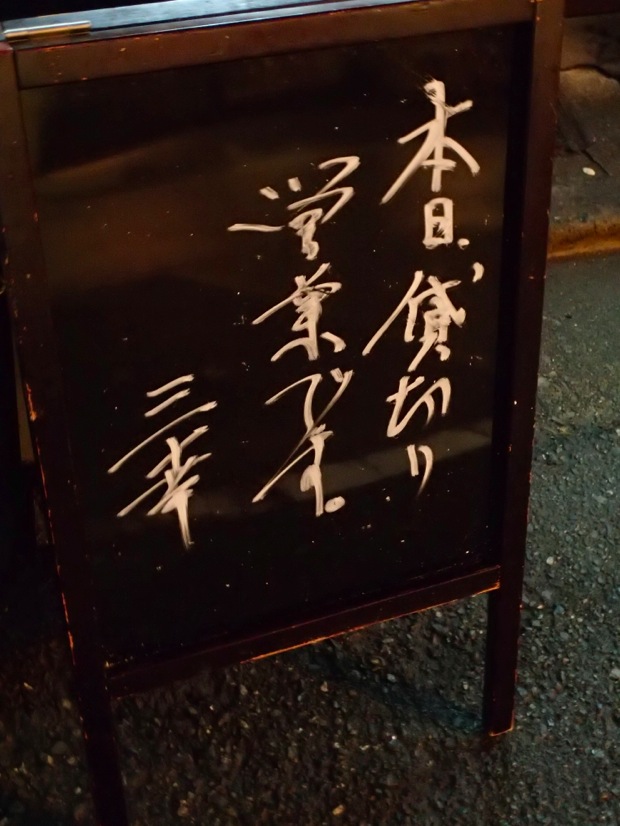 本日、貸切り
営業です。
三幸